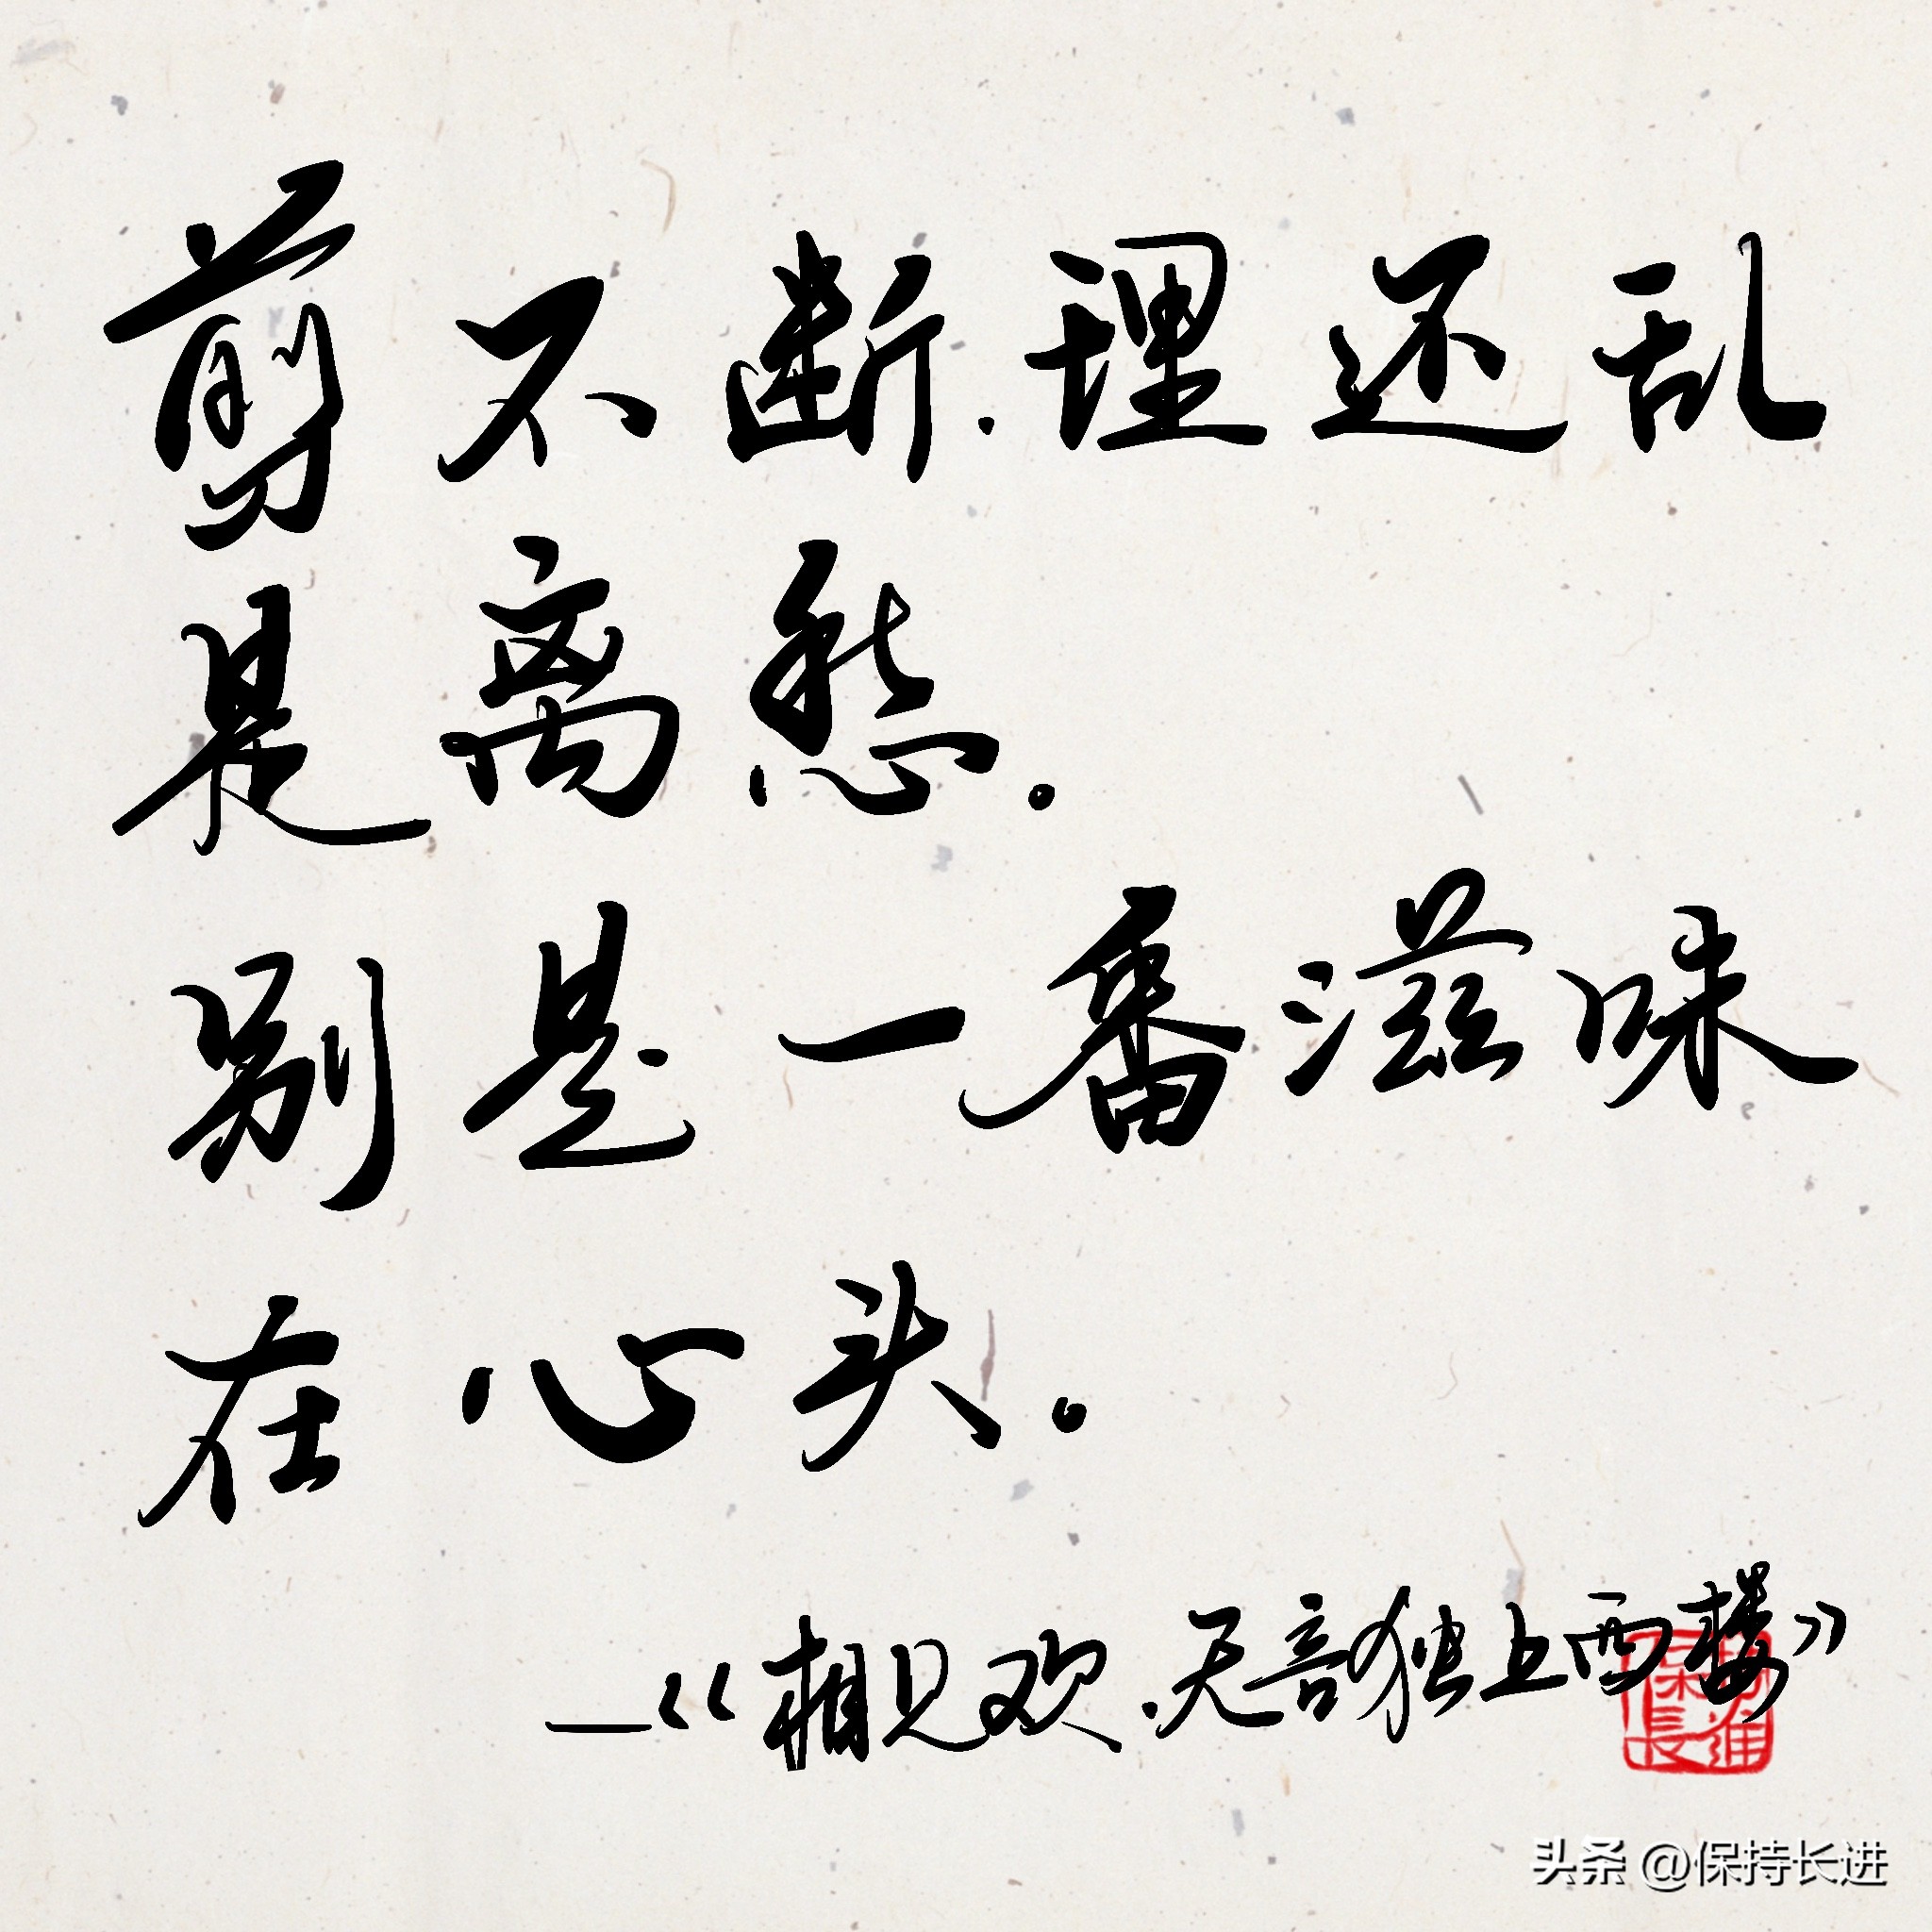 剪不断,理还乱
是离愁。
别是一番滋味
在心头。
—《相见欢·无言独上西楼》
保持长进
头条 @保持长进